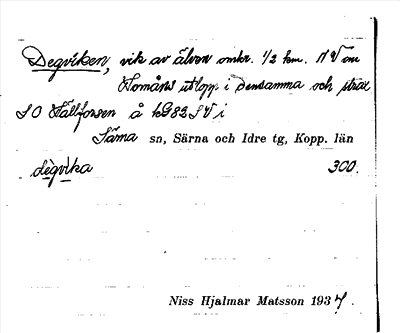 Degviken, vik av älven omkr. 1/2 km. NV om
Tomåns utlopp i densamma och strax
SO Fällforsen å kG82SV i
Särna sn, Särna och Idre tg, Kopp. län
dègvìka 300.
Niss Hjalmar Matsson 1937.